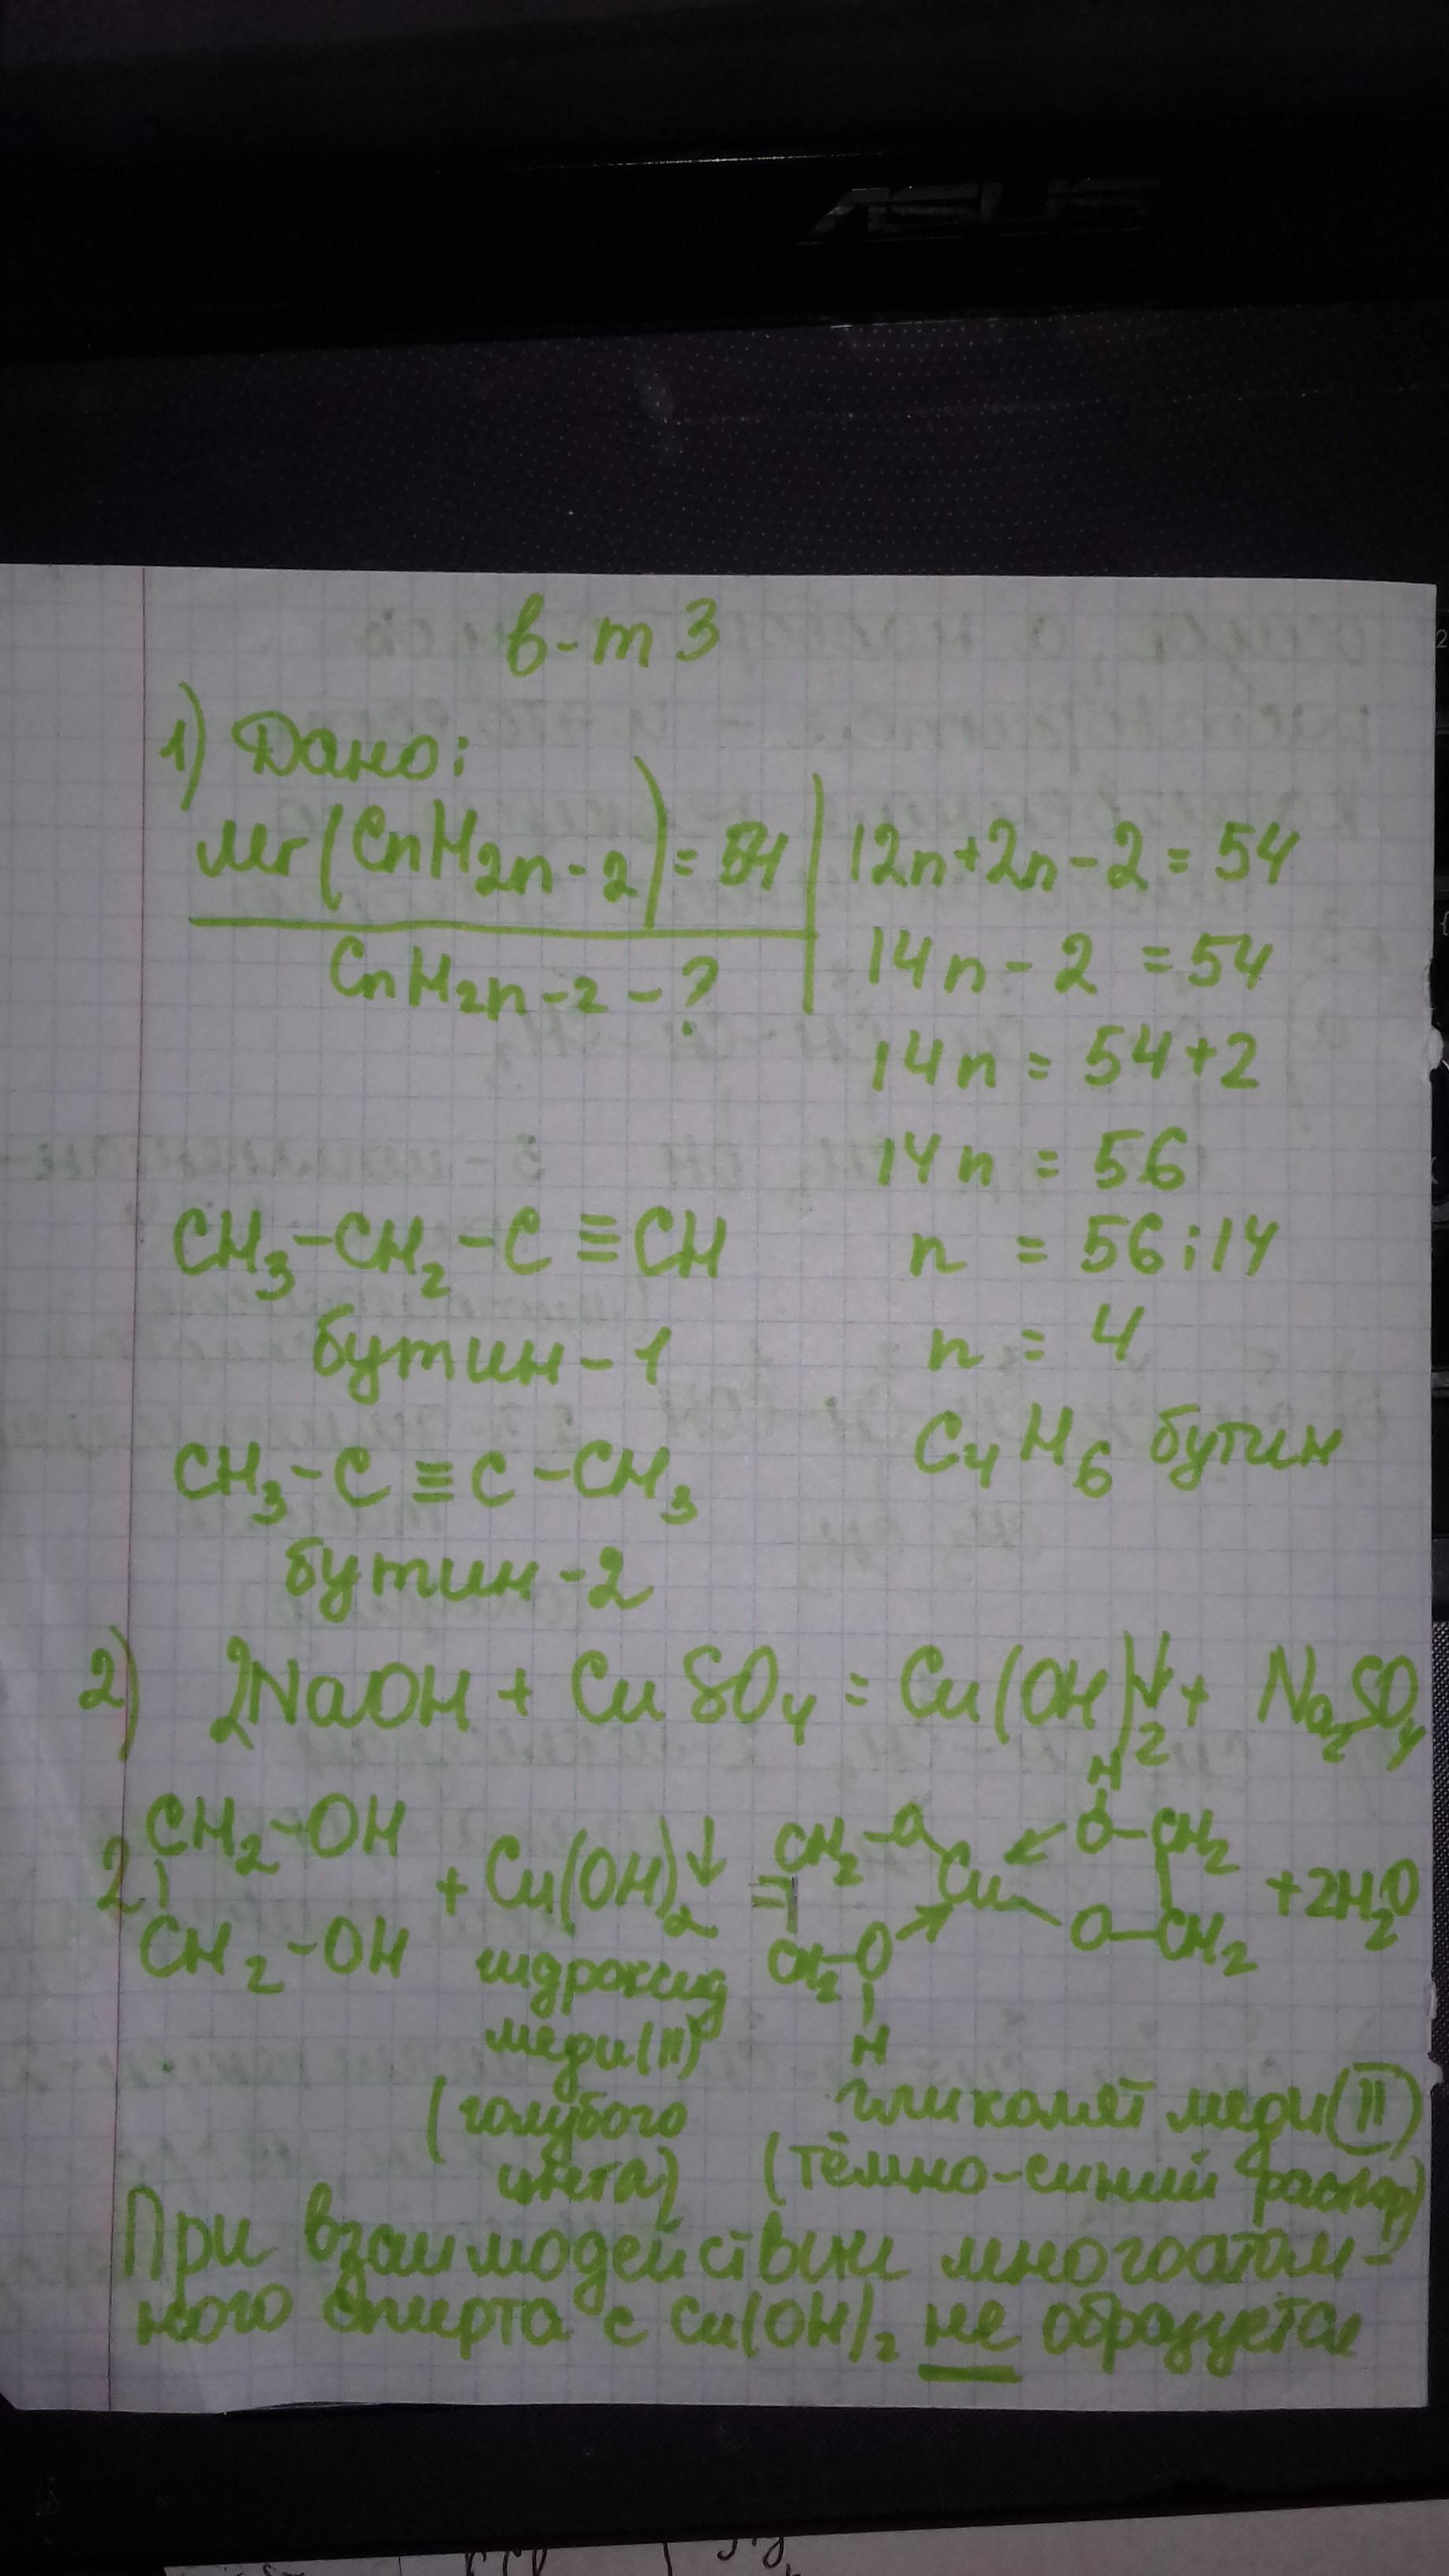 ASUS
в-т 3
1) Дано:
Mr(CnH2n-2) = 54
CnH2n-2 - ?
12n+2n-2=54
14n-2=54
14n=54+2
14n=56
n=56:14
n=4
C4H6 бутин
CH3-CH2-C≡CH
бутин-1
CH3-C≡C-CH3
бутин-2
2) 2NaOH + CuSO4 = Cu(OH)2↓ + Na2SO4
H
CH2-OH CH2-O O-CH2
2 + Cu(OH)2↓ = Cu +2H2O
CH2-OH CH2-O O-CH2
H
гидроксид
меди(II)
(голубого
цвета)
гликолят меди(II)
(тёмно-синий раствор)
При взаимодействии многоатом-
ного спирта с Cu(OH)2 не образуется